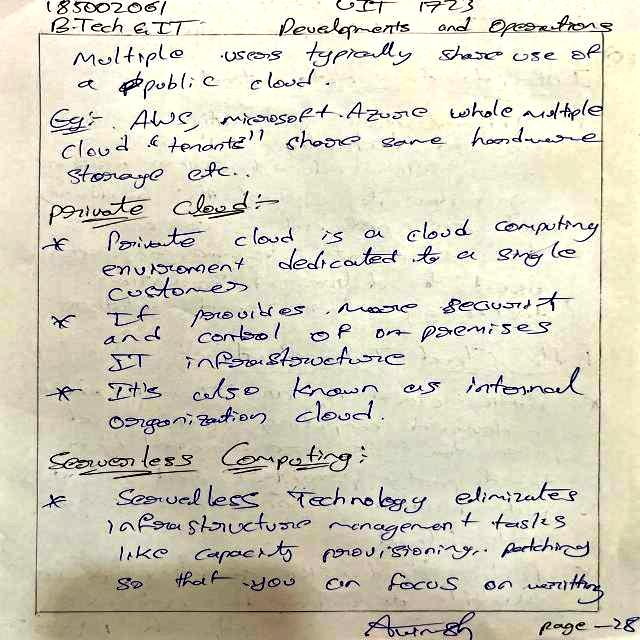 185002061 UIT 1723
B.Tech & IT Developments and Operations
Multiple users typically share use of
a public cloud.
Eg:- AWS, microsoft Azure whole multiple
cloud "tenants" share same hardware
storage etc..
private cloud:-
* Private cloud is a cloud computing
enviroment dedicated to a single
customer
* It provides more securit
and control of on premises
IT infrastructure
* It's also known as internal
organization cloud.
Serverless Computing:
* Servelless Technology eliminates
infrastructure management tasks
like capacity provisioning, patching
so that you can focus on writting
page - 28